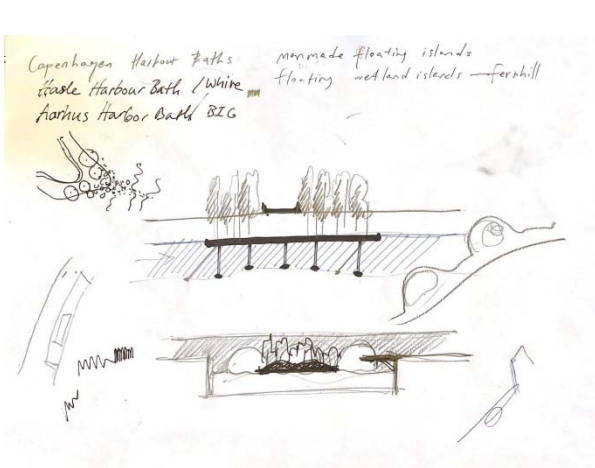 Copenhagen Harbour Baths
Hasle Harbour Bath / White
Aarhus Harbor Bath / BIG
manmade floating islands
floating wetland islands — fernhill